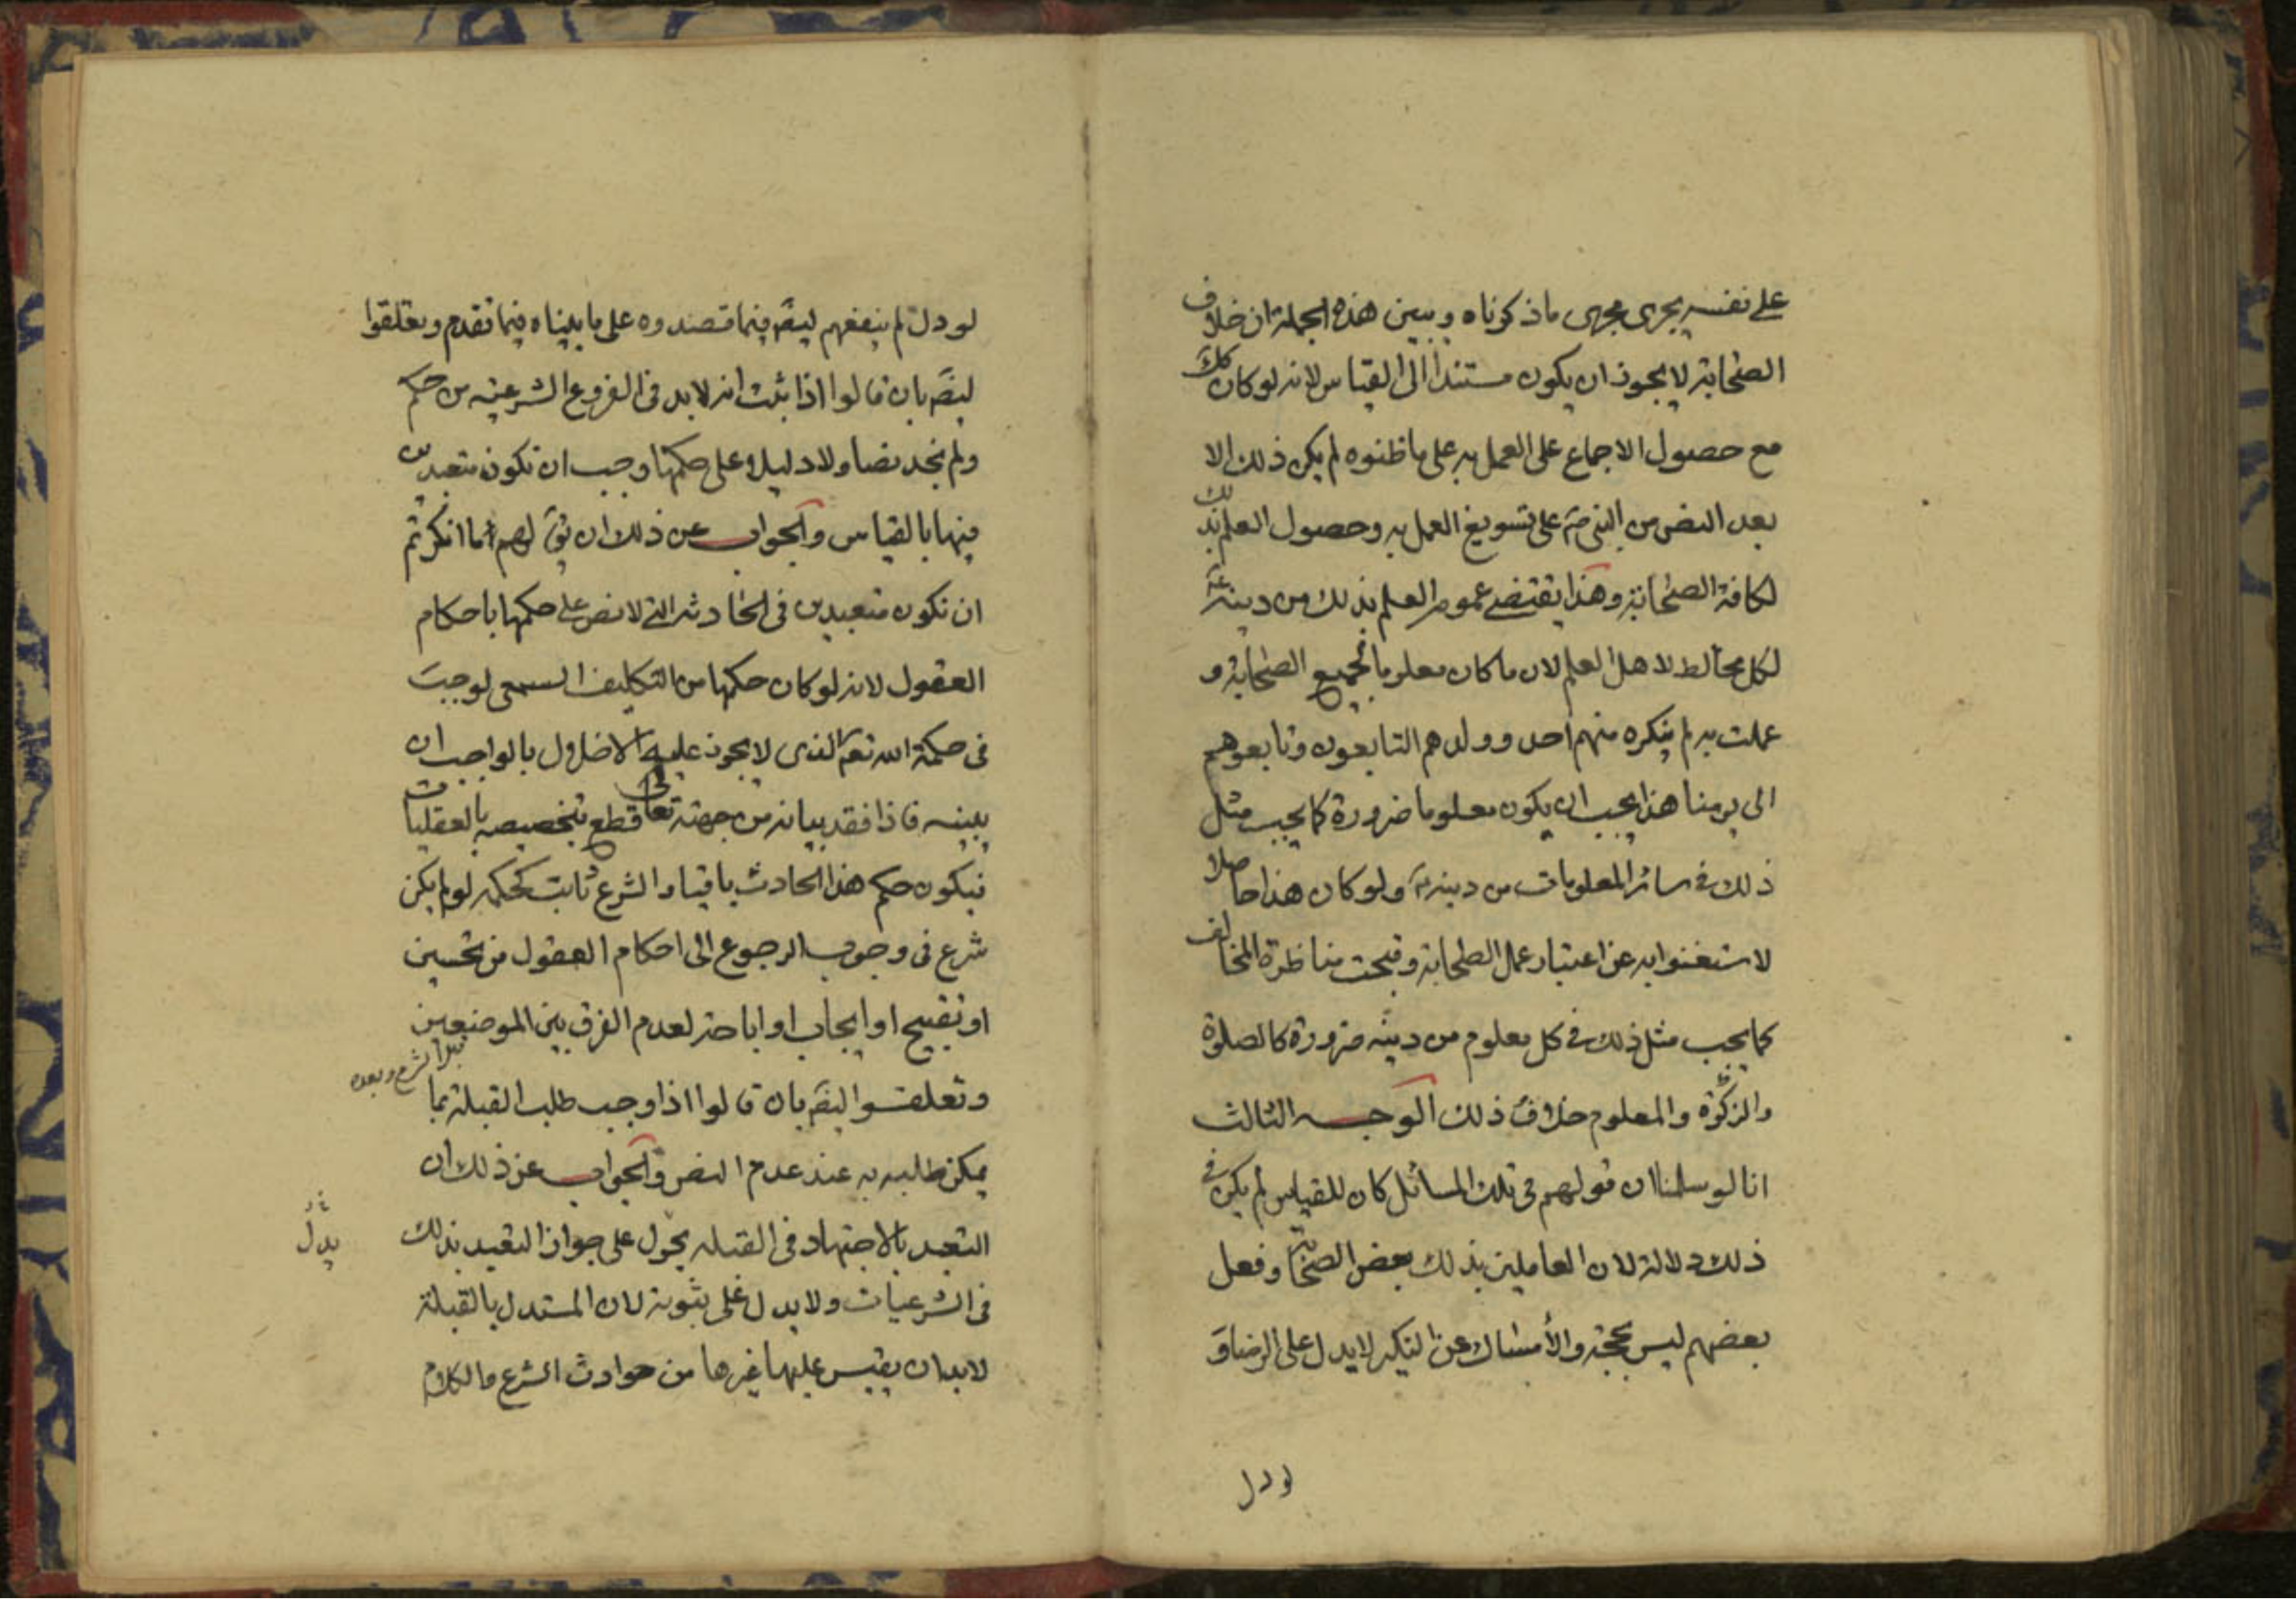 على نفسه يجرى مجرى ما ذكرناه ويبين هذه الجملة ان خلاف
الصحابة لا يجوز ان يكون مستندا الى القياس لانه لو كان كك
مع حصول الاجماع على العمل به على ما ظنوه لم يكن ذلك الا
بعد النص من النبى ص على تسويغ العمل به وحصول العلم بذلك
لكافة الصحابة وهذا يقتضى عموم العلم بذلك من دينه ع
لكل مخالط لاهل العلم لان ما كان معلوما لجميع الصحابة و
عملت به لم ينكره منهم احد وولدهم التابعون وتابعوهم
الى يومنا هذا يجب ان يكون معلوما ضرورة كما يجب مثل
ذلك فى سائر المعلومات من دينه ص ولو كان هذا حاصلا
لاستغنوا به عن اعتبار عمل الصحابة وقبحت مناظرة المخالف
كما يجب مثل ذلك فى كل معلوم من دينه ضرورة كالصلوة
والزكوة والمعلوم خلاف ذلك الوجه الثالث
انا لو سلمنا ان قولهم فى تلك المسائل كان للقياس لم يكن فى
ذلك دلالة لان العاملين بذلك بعض الصحابة وفعل
بعضهم ليس بحجة والأمساك عن النكير لا يدل على الرضا و
لو دل
لو دل لم ينفعهم ليضم فيما قصدوه على ما بيناه فيما تقدم وتعلقوا
ايضم بان قالوا اذا ثبت انه لا بد فى الفروع الشرعيه من حكم
ولم نجد نصا ولا دليلا على حكمها وجب ان نكون متعبدين
فيها بالقياس والجواب عن ذلك ان يق لهم اما انكرتم
ان نكون متعبدين فى الحادثة التى لا نص على حكمها باحكام
العقول لانه لو كان حكمها من التكليف السمعى لوجبت
فى حكمة الله تعم الذى لا يجوز عليه الاخلال بالواجب ان
يبينه فاذا فقد بيانه من جهته تعالى قطع بتخصيصه بالعقليات
فيكون حكم هذا الحادث باقيا والشرع ثابت كحكمه لو لم يكن
شرع فى وجوب الرجوع الى احكام العقول من تحسين
او تقبيح او ايجاب او اباحة لعدم الفرق بين الموضعين
قبل الشرع وبعده
وتعلقوا ايضم بان قالوا اذا وجب طلب القبلة بما
يمكن طلبه به عند عدم النص والجواب عن ذلك ان
التعبد بالاجتهاد فى القبله يحول على جواز التعبد بذلك
يدل
فى الشرعيات ولا يدل على ثبوته لان المستدل بالقبلة
لا بد ان يقيس عليها غيرها من حوادث الشرع والكلام